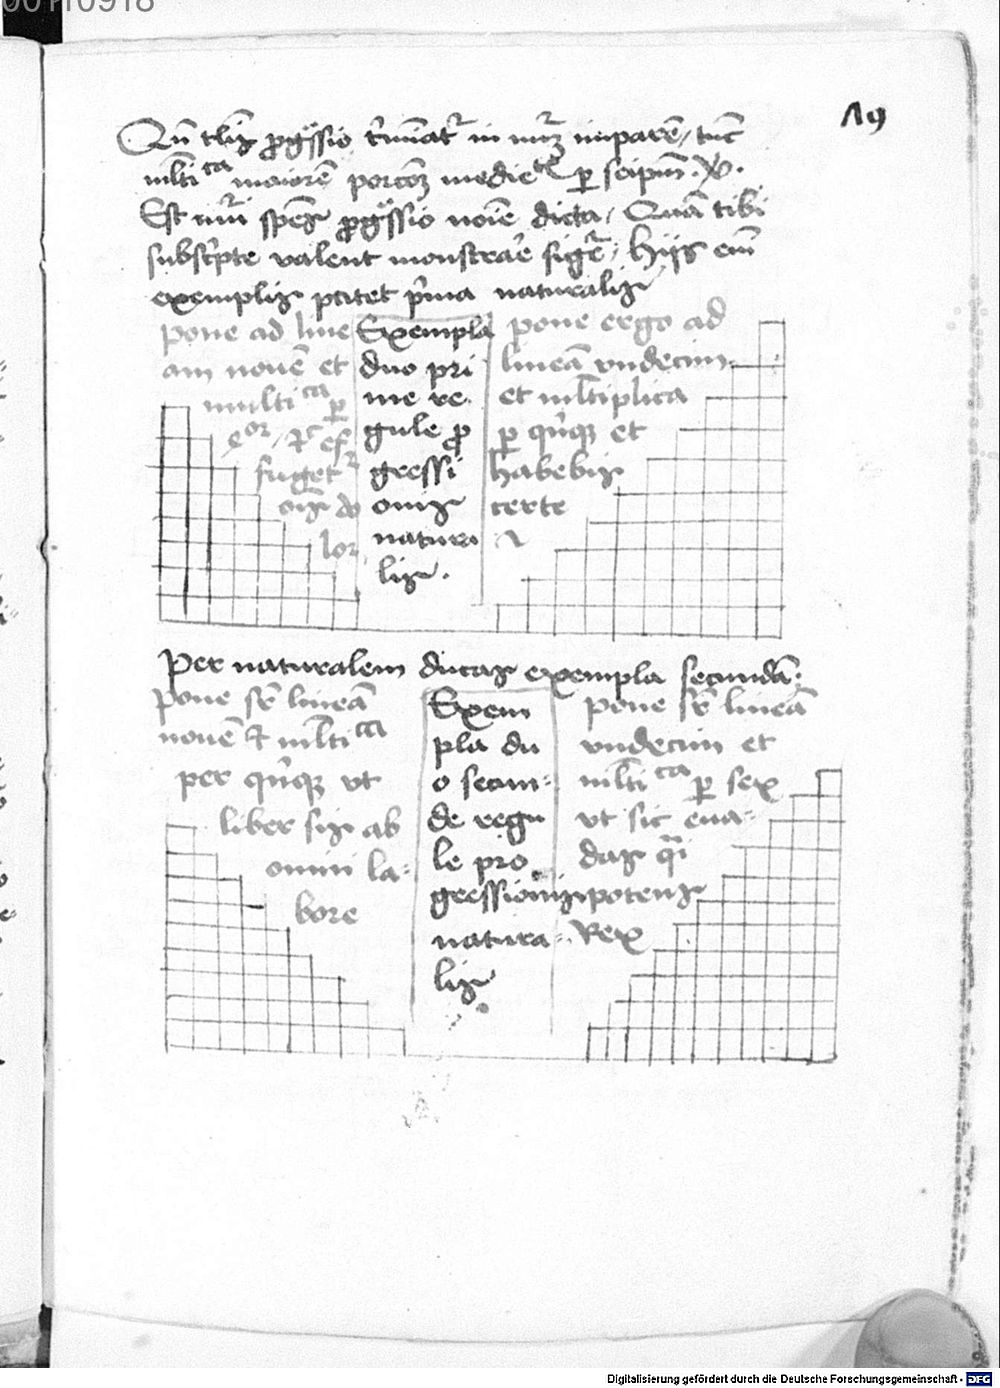 00110918
19
Qn̄ tlis ꝓgssio t̉minat᷑ in nu᷑ꝫ imparē / tūc
ml̄tica maiorē porcōꝫ medie p seipm̄
Est spēs ꝓgssio noīe dicta / Quā tibi
subscⁱpte valent monstrare / Hijs em̄
exemplis patet pⁱma naturalis
pone ad line
am nouē et
multica p
lor
Exempla
duo pri
me re
gule ꝓ
gressi
onis
natura
lis .
pone ergo ad
lineā vndecim
et ml̄tiplica
p qⁱnqꝫ et
habebis
certe
Per naturalem ducas exempla secundā :
Pone lineā
nouē ml̄tica
per qⁱnqꝫ vt
liber sis ab
omni la=
bore
Exem
pla du
o secun=
de regu
le pro
gressionis
natura=
lis
pone lineā
vndecim et
ml̄tica p sex
vt sic eua=
das
ipotens
Rex
Digitalisierung gefördert durch die Deutsche Forschungsgemeinschaft - DFG